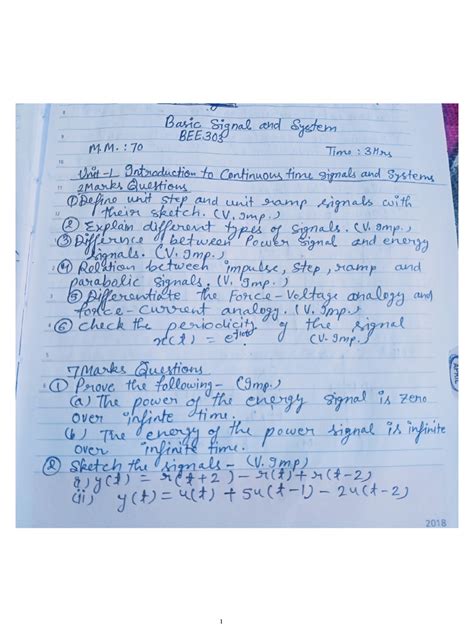 Basic Signal and System
BEE303
M.M.: 70
Time: 3Hrs
Unit-1 Introduction to Continuous time signals and Systems
2Marks Questions
① Define unit step and unit ramp signals with
their sketch. (V. Imp.)
② Explain different types of signals. (V. Imp.)
③ Difference between Power signal and energy
signals. (V. Imp.)
④ Relation between impulse, step, ramp and
parabolic signals. (V. Imp.)
⑤ Differentiate the Force-Voltage analogy and
force-current analogy. (V. Imp.)
⑥ Check the periodicity of the signal
(V. Imp.)
7 Marks Questions
① Prove the following- (Imp.)
(a) The power of the energy signal is zero
over infinite time.
(b) The energy of the power signal is infinite
over infinite time.
② Sketch the signals- (V. Imp)
i) y(t) = r(t+2) - r(t) + r(t-2)
(ii) y(t) = u(t) + 5u(t-1) - 2u(t-2)
2018
1